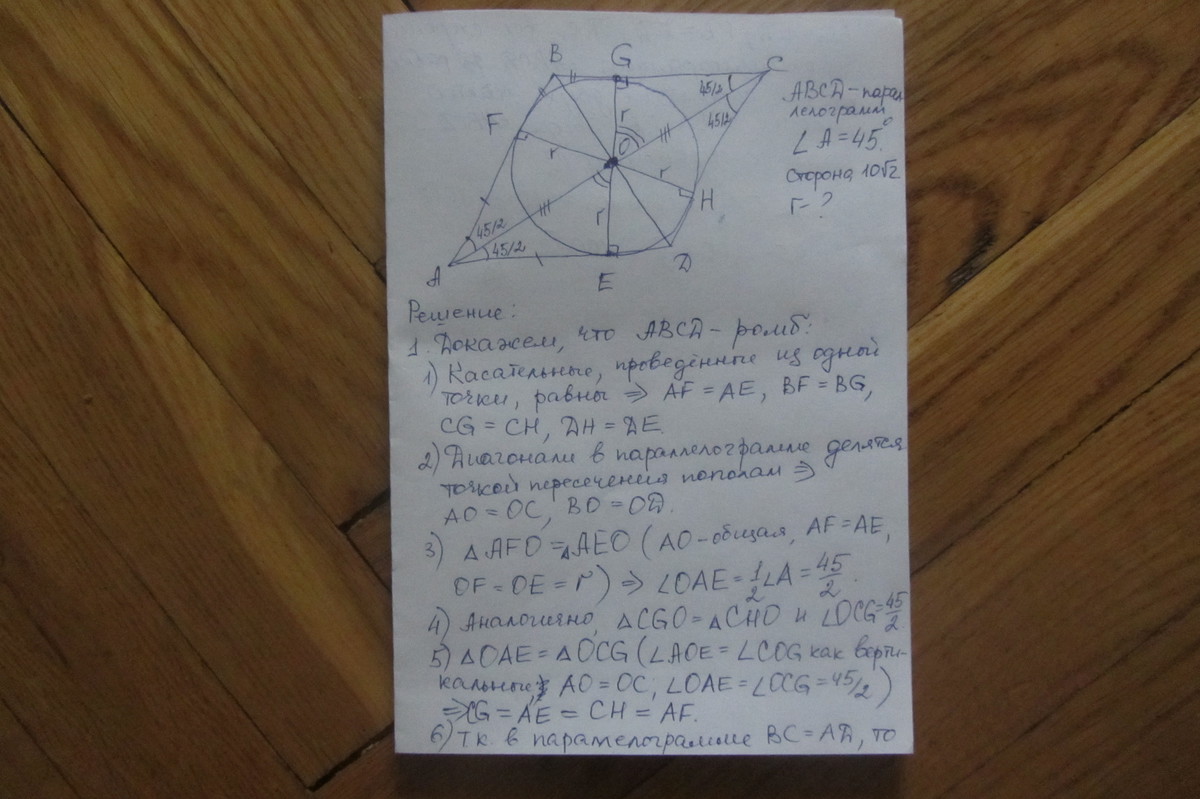 B G C
45/2
45/2
F r O r H
r
45/2
45/2
A E D
ABCD-парал
лелограмм
∠A=45°.
сторона 10√2
r-?
Решение:
1. Докажем, что ABCD - ромб:
1) Касательные, проведённые из одной
точки, равны ⇒ AF = AE, BF = BG,
CG = CH, DH = DE.
2) Диагонали в параллелограмме делятся
точкой пересечения пополам ⇒
AO = OC, BO = OD.
3) △AFO = △AEO (AO-общая, AF=AE,
OF = OE = r) ⇒ ∠OAE = 1/2 ∠A = 45/2.
4) Аналогично, △CGO = △CHO и ∠OCG = 45/2
5) △OAE = △OCG (∠AOE = ∠COG как верти-
кальные; AO = OC; ∠OAE = ∠OCG = 45/2)
⇒ CG = AE = CH = AF.
6) Т.к. в параллелограмме BC = AD, то